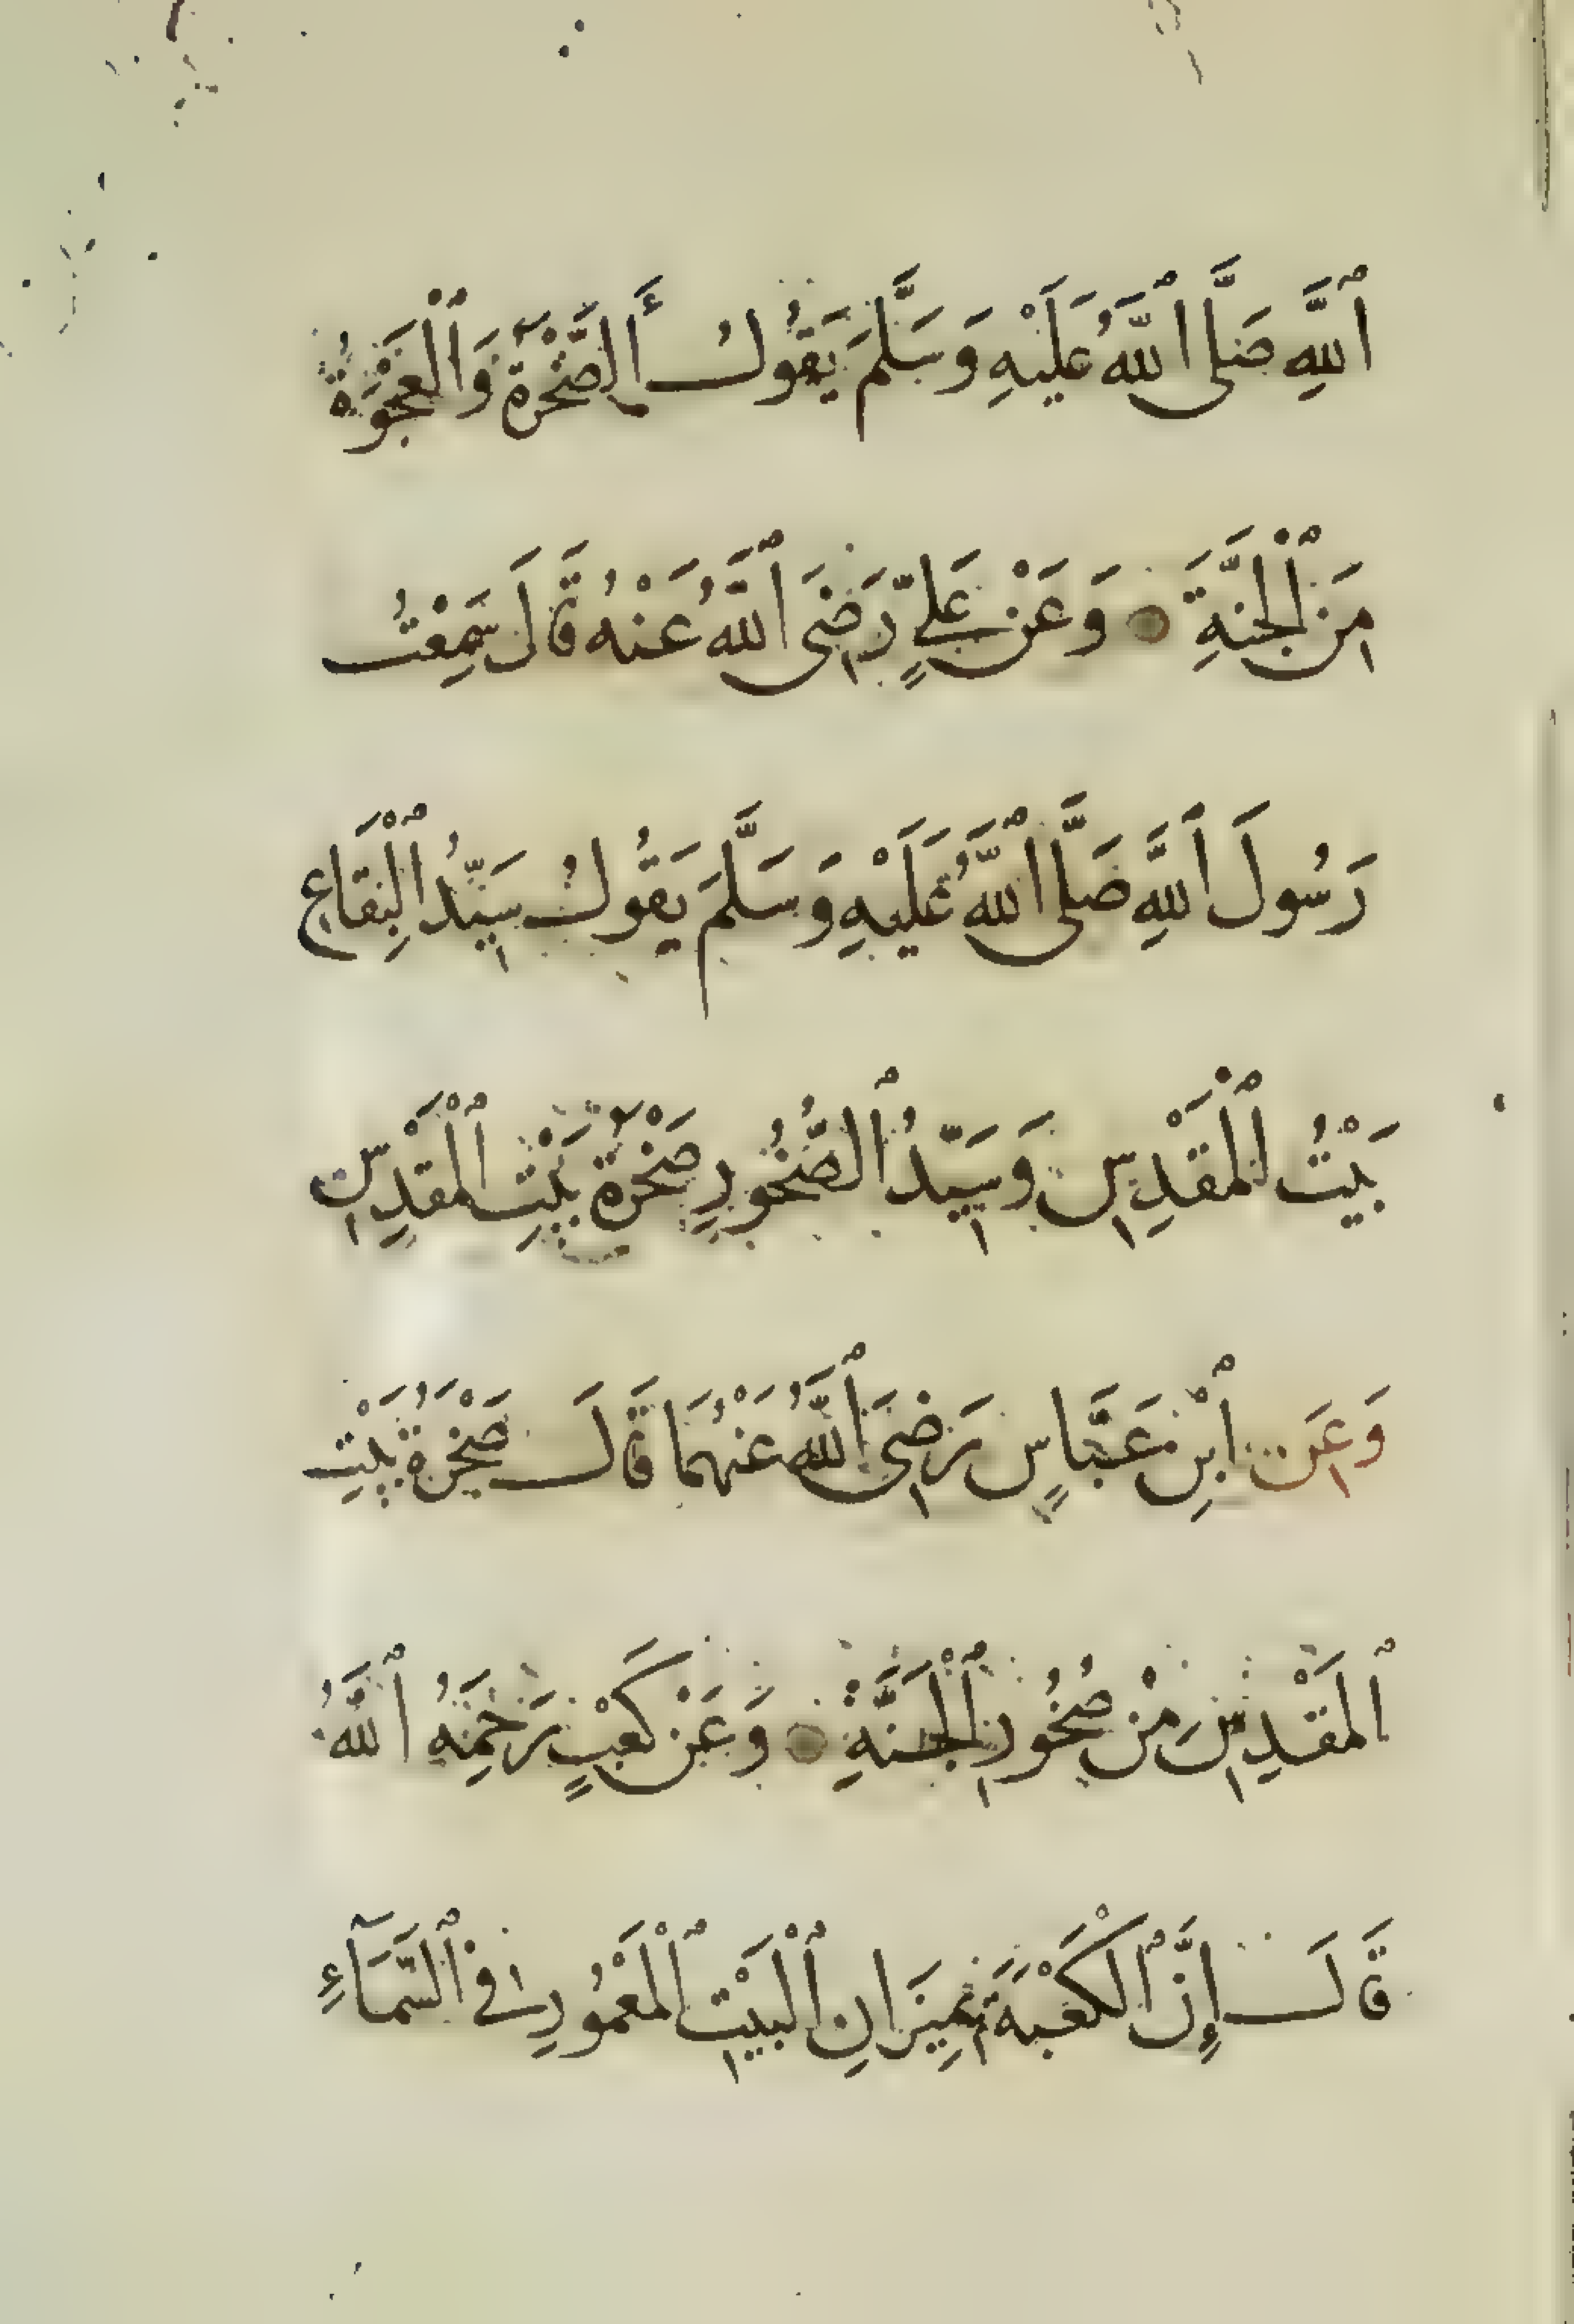 ٱللَّهِ صَلَّى ٱللَّهُ عَلَيْهِ وَسَلَّمَ يَقُولُ أَلصَّخْرَةُ وَٱلْعَجْوَةُ
مِنَ ٱلْجَنَّةِ وَعَنْ عَلِيٍّ رَضِىَ ٱللَّهُ عَنْهُ قَالَ سَمِعْتُ
رَسُولَ ٱللَّهِ صَلَّى ٱللَّهُ عَلَيْهِ وَسَلَّمَ يَقُولُ سَيِّدُ ٱلْبِقَاعِ
بَيْتُ ٱلْمَقْدِسِ وَسَيِّدُ ٱلصُّخُورِ صَخْرَةُ بَيْتِ ٱلْمَقْدِسِ
وَعَنِ ٱبْنِ عَبَّاسٍ رَضِىَ ٱللَّهُ عَنْهُمَا قَالَ صَخْرَةُ بَيْتِ
ٱلْمَقْدِسِ مِنْ صُخُورِ ٱلْجَنَّةِ وَعَنْ كَعْبٍ رَحِمَهُ ٱللَّهُ
قَالَ إِنَّ ٱلْكَعْبَةَ بِمِيزَانِ ٱلْبَيْتِ ٱلْمَعْمُورِ فِى ٱلسَّمَآءِ